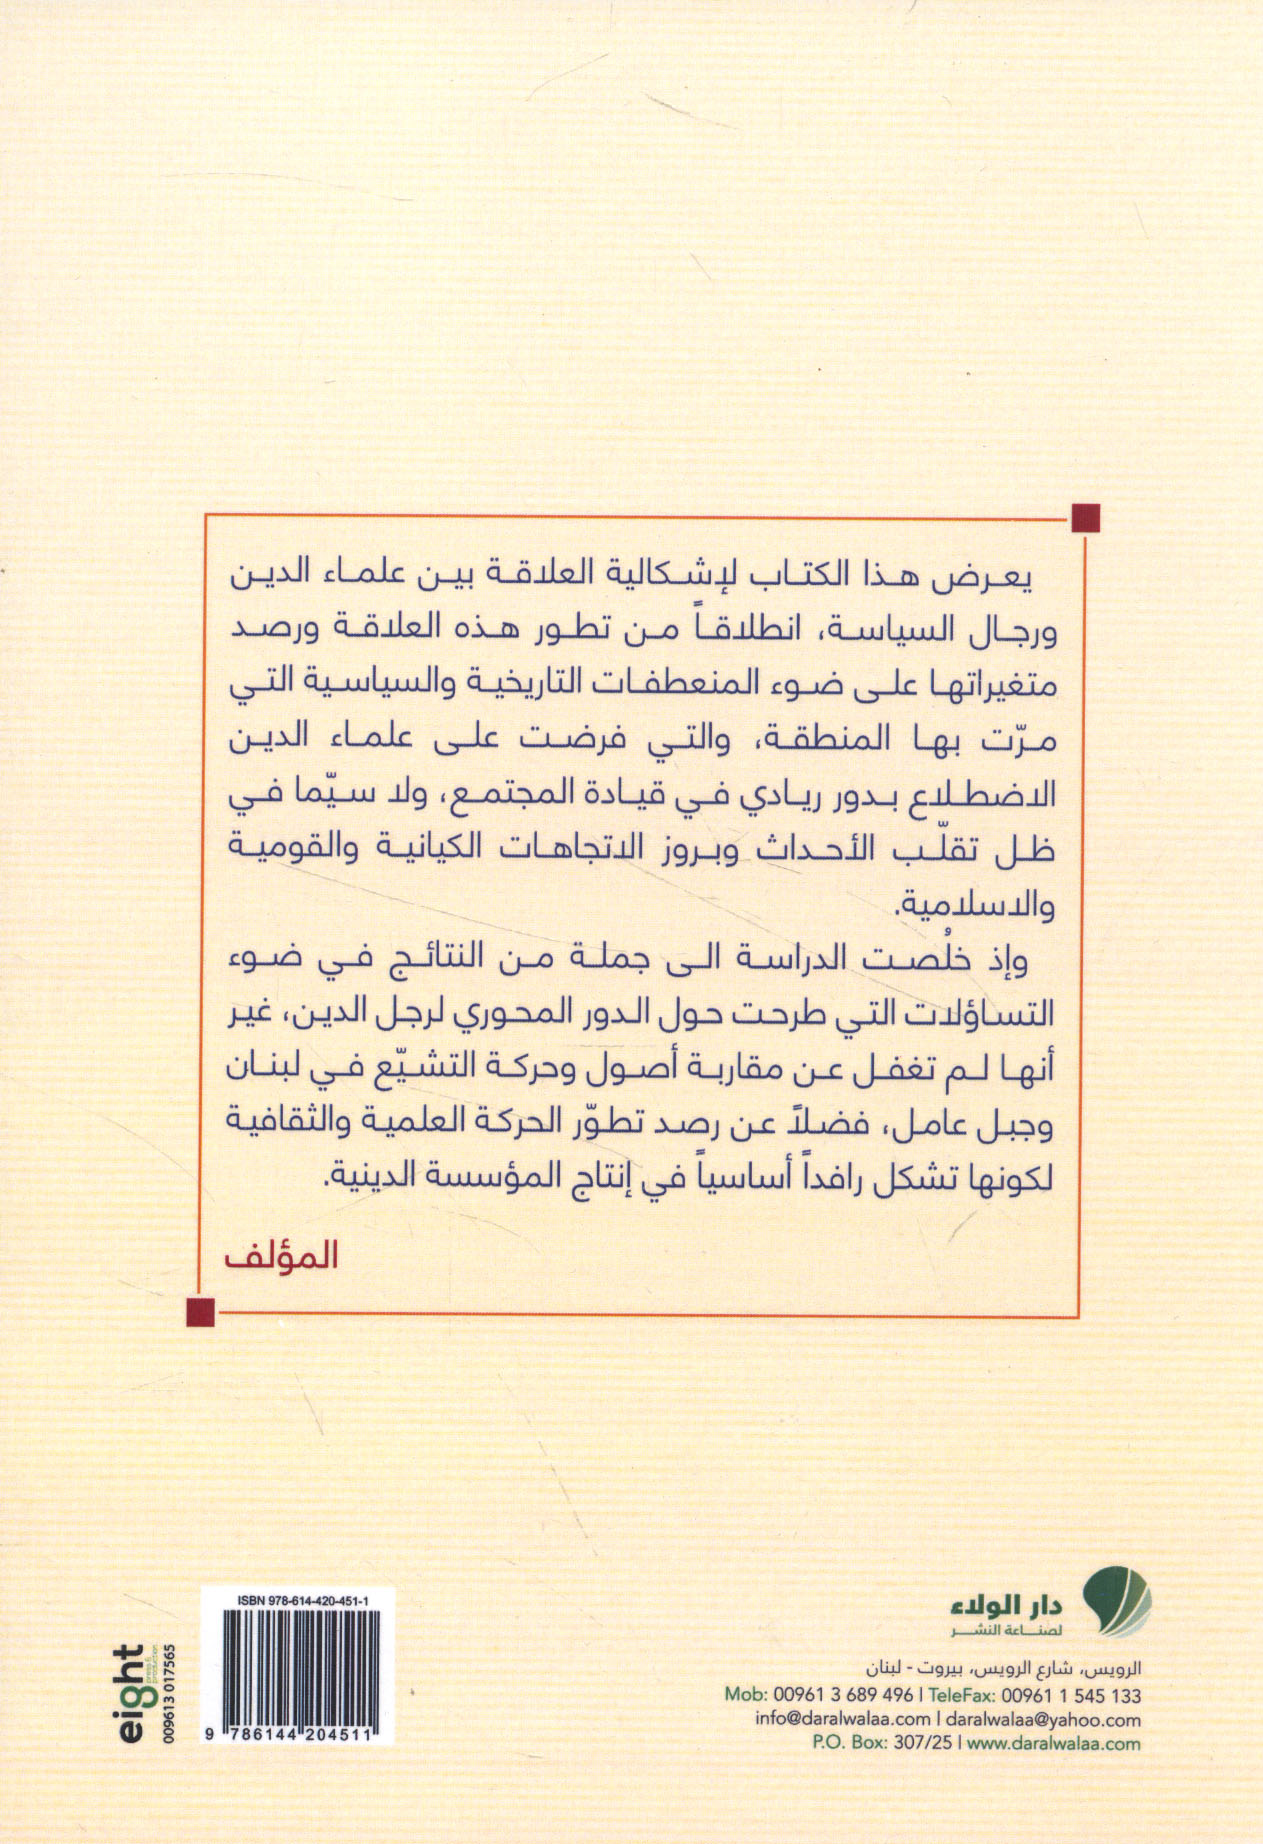 يعرض هذا الكتاب لإشكالية العلاقة بين علماء الدين
ورجال السياسة، انطلاقاً من تطور هذه العلاقة ورصد
متغيراتها على ضوء المنعطفات التاريخية والسياسية التي
مرّت بها المنطقة، والتي فرضت على علماء الدين
الاضطلاع بدور ريادي في قيادة المجتمع، ولا سيّما في
ظل تقلّب الأحداث وبروز الاتجاهات الكيانية والقومية
والاسلامية.
وإذ خلُصت الدراسة الى جملة من النتائج في ضوء
التساؤلات التي طرحت حول الدور المحوري لرجل الدين، غير
أنها لم تغفل عن مقاربة أصول وحركة التشيّع في لبنان
وجبل عامل، فضلاً عن رصد تطوّر الحركة العلمية والثقافية
لكونها تشكل رافداً أساسياً في إنتاج المؤسسة الدينية.
المؤلف
دار الولاء
لصناعة النشر
الرويس، شارع الرويس، بيروت - لبنان
Mob: 00961 3 689 496 | TeleFax: 00961 1 545 133
info@daralwalaa.com | daralwalaa@yahoo.com
P.O. Box: 307/25 | www.daralwalaa.com
ISBN 978-614-420-451-1
9 786144 204511
eight
press &
production
009613 017565